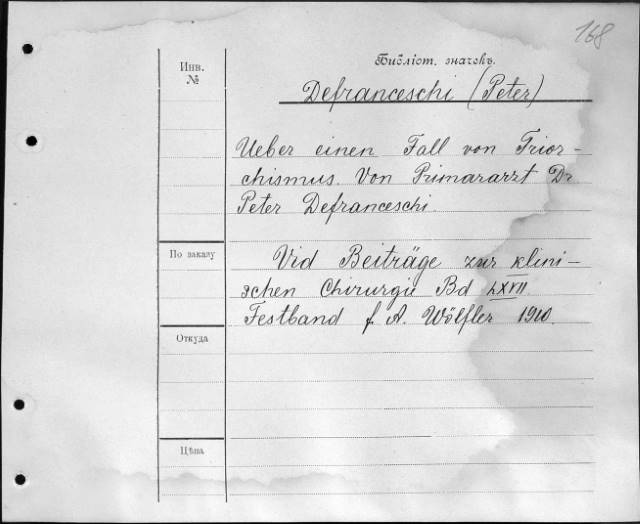 168
Библіот. значекъ.
Инв.
№
Defranceschi (Peter)
Ueber einen Fall von Trior-
chismus. Von Primararzt Dr
Peter Defranceschi.
По заказу
Vid Beiträge zur klini-
schen Chirurgie Bd LXVII
Festband f. A. Wölfler 1910.
Откуда
Цѣна